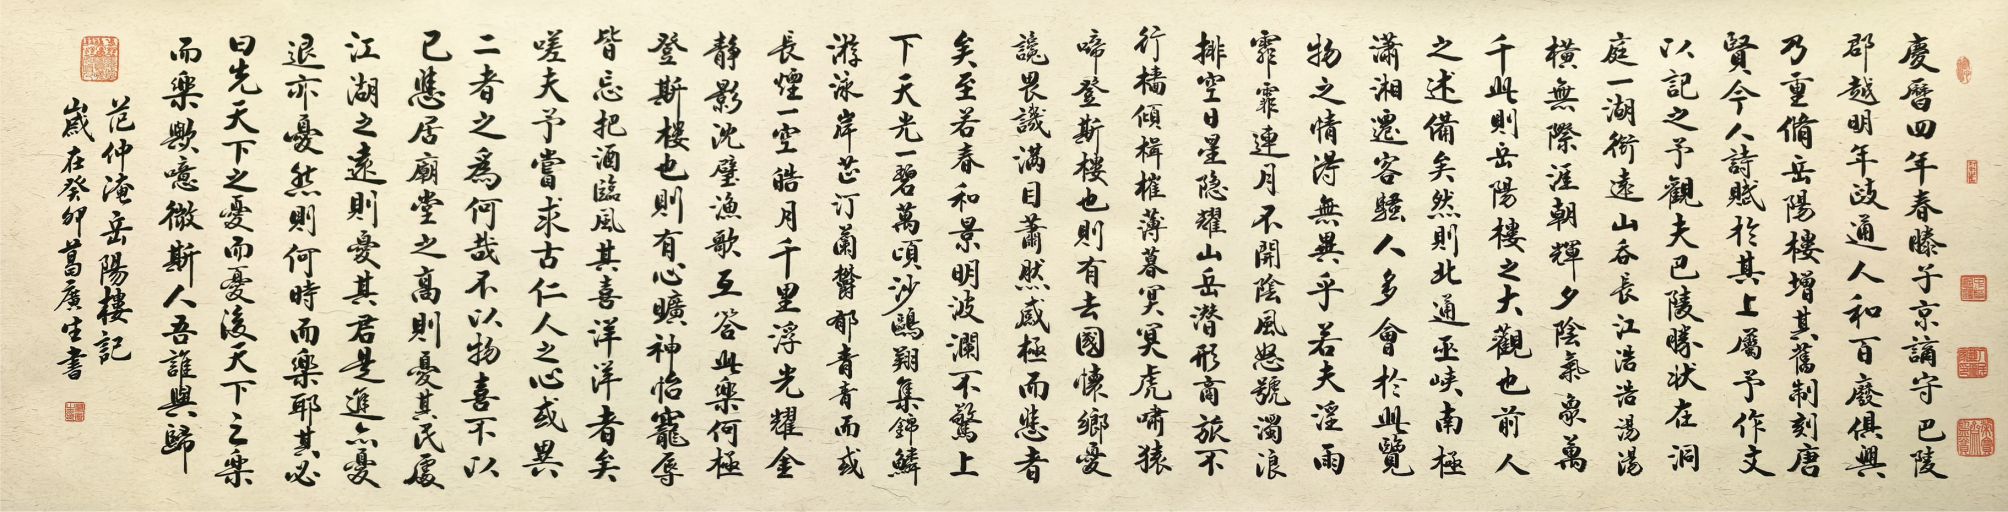 慶曆四年春滕子京謫守巴陵
郡越明年政通人和百廢俱興
乃重脩岳陽樓增其舊制刻唐
賢今人詩賦於其上屬予作文
以記之予觀夫巴陵勝狀在洞
庭一湖銜遠山吞長江浩浩湯湯
橫無際涯朝輝夕陰氣象萬
千此則岳陽樓之大觀也前人
之述備矣然則北通巫峽南極
瀟湘遷客騷人多會於此覽
物之情得無異乎若夫淫雨
霏霏連月不開陰風怒號濁浪
排空日星隐耀山岳潛形商旅不
行檣傾楫摧薄暮冥冥虎嘯猿
啼登斯樓也則有去國懷鄉憂
讒畏譏滿目蕭然感極而悲者
矣至若春和景明波瀾不驚上
下天光一碧萬頃沙鷗翔集錦鱗
游泳岸芷汀蘭鬱郁青青而或
長煙一空皓月千里浮光耀金
靜影沈璧漁歌互答此樂何極
登斯樓也則有心曠神怡寵辱
皆忘把酒臨風其喜洋洋者矣
嗟夫予嘗求古仁人之心或異
二者之為何哉不以物喜不以
己悲居廟堂之高則憂其民處
江湖之遠則憂其君是進亦憂
退亦憂然則何時而樂耶其必
曰先天下之憂而憂後天下之樂
而樂歟噫微斯人吾誰與歸
范仲淹岳陽樓記
歲在癸卯葛廣生書